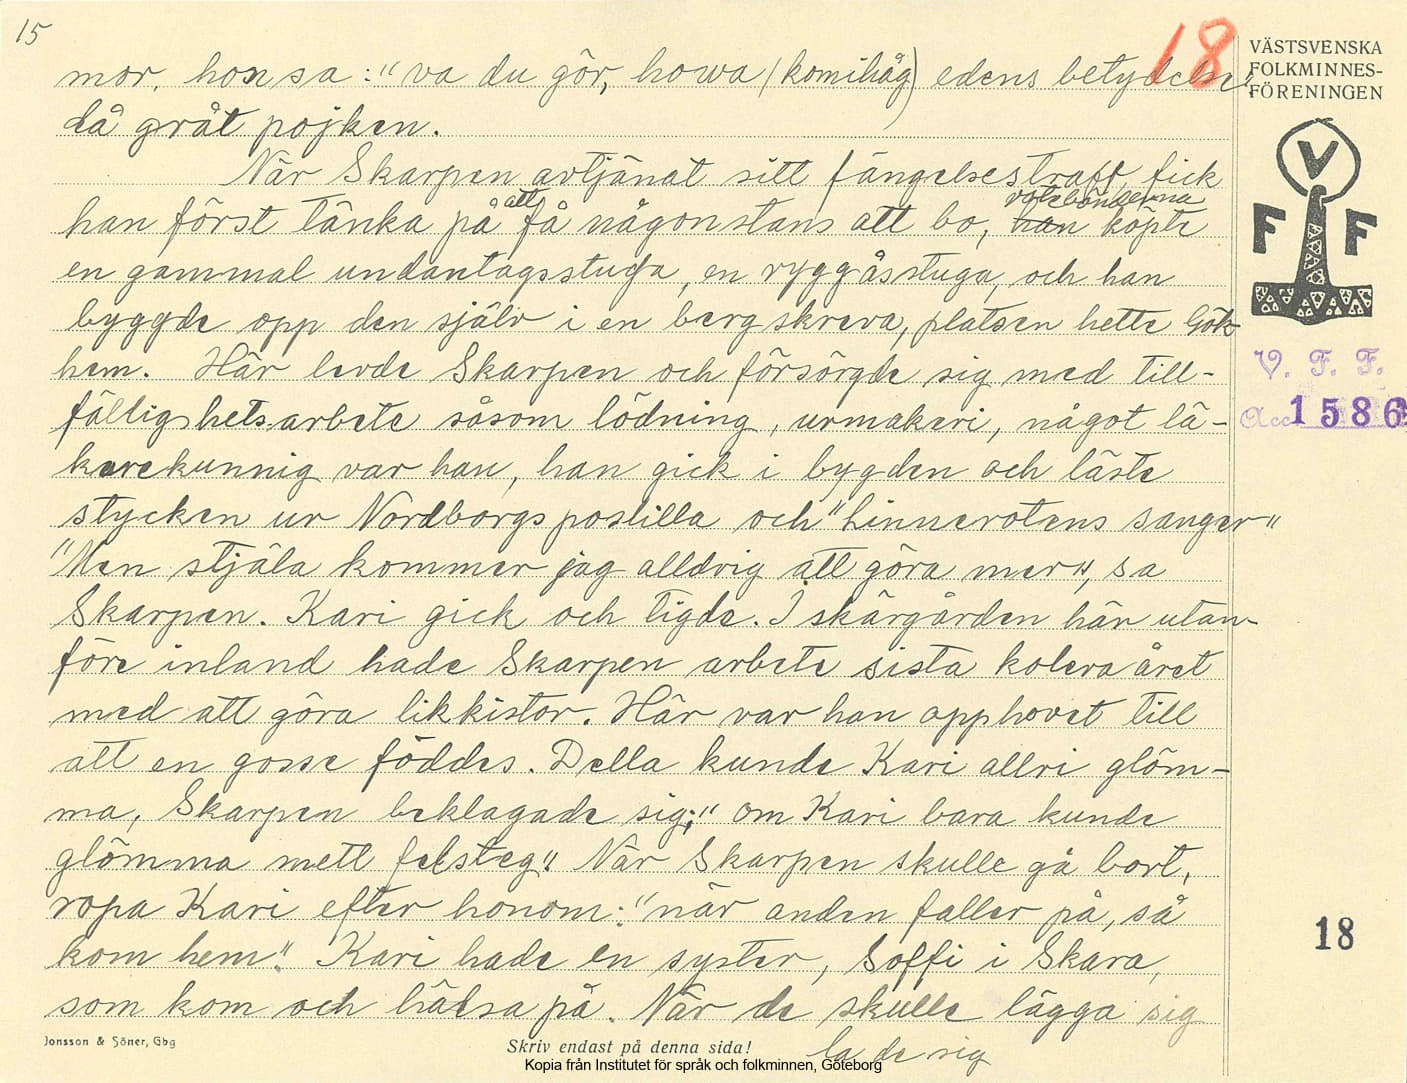 15
18
VÄSTSVENSKA
FOLKMINNES-
FÖRENINGEN
V
F F
V. F. F.
Acc 1586
mor, hon sa: "va du gör, howa (komihåg) edens betydelse,
då gråt pojken.
När Skarpen avtjänat sitt fängelsestraff fick
han först tänka på att få någonstans att bo, han köpte
en gammal undantagsstuga, en ryggåsstuga, och han
byggde opp den själv i en bergskreva, platsen hette Gök-
hem. Här levde Skarpen och försörgde sig med till-
fällighetsarbete såsom lödning, urmakeri, något lä-
kerekunnig var han, han gick i bygden och läste
stycken ur Nordborgs postilla och "Linnerotens sanger"
"Men stjäla kommer jag alldrig att göra mer", sa
Skarpen. Kari gick och tigde. I skärgården här utan-
före inland hade Skarpen arbete sista kolera året
med att göra likkistor. Här var han opphovet till
att en gosse föddes. Della kunde Kari allri glöm-
ma, Skarpen beklagade sig; "om Kari bara kunde
glömma mett felsteg". När Skarpen skulle gå bort,
ropa Kari efter honom: "när anden faller på, så
kom hem". Kari hade en syster, Soffi i Skara,
som kom och hälsa på. När de skulle lägga sig
la de sig
18
Jonsson & Söner, Gbg
Skriv endast på denna sida!
Kopia från Institutet för språk och folkminnen, Göteborg